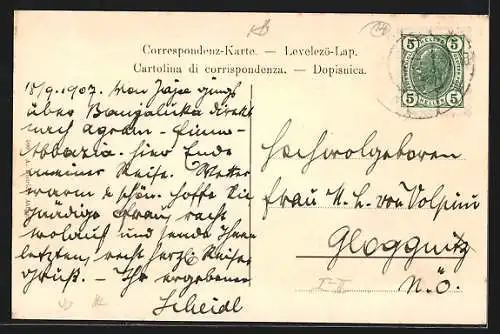 Correspondenz-Karte. — Levelező-Lap.
Cartolina di corrispondenza. — Dopisnica.
5 5
HELLER HELLER
5 5
18/9. 1907. Von Jajce gings
über Banjaluka direkt
nach Agram - Fiume-
Abbazia. Hier Ende
meiner Reise. Wetter
warm & schön. Hoffe Sie
gnädige Frau recht
wolauf und sende Ihnen
letzten, recht herzl. Reise-
gruß. - Ihr ergebener
Scheidl
Hochwolgeboren
Frau M. L. von Volpini
Gloggnitz
N.Ö.
I-II